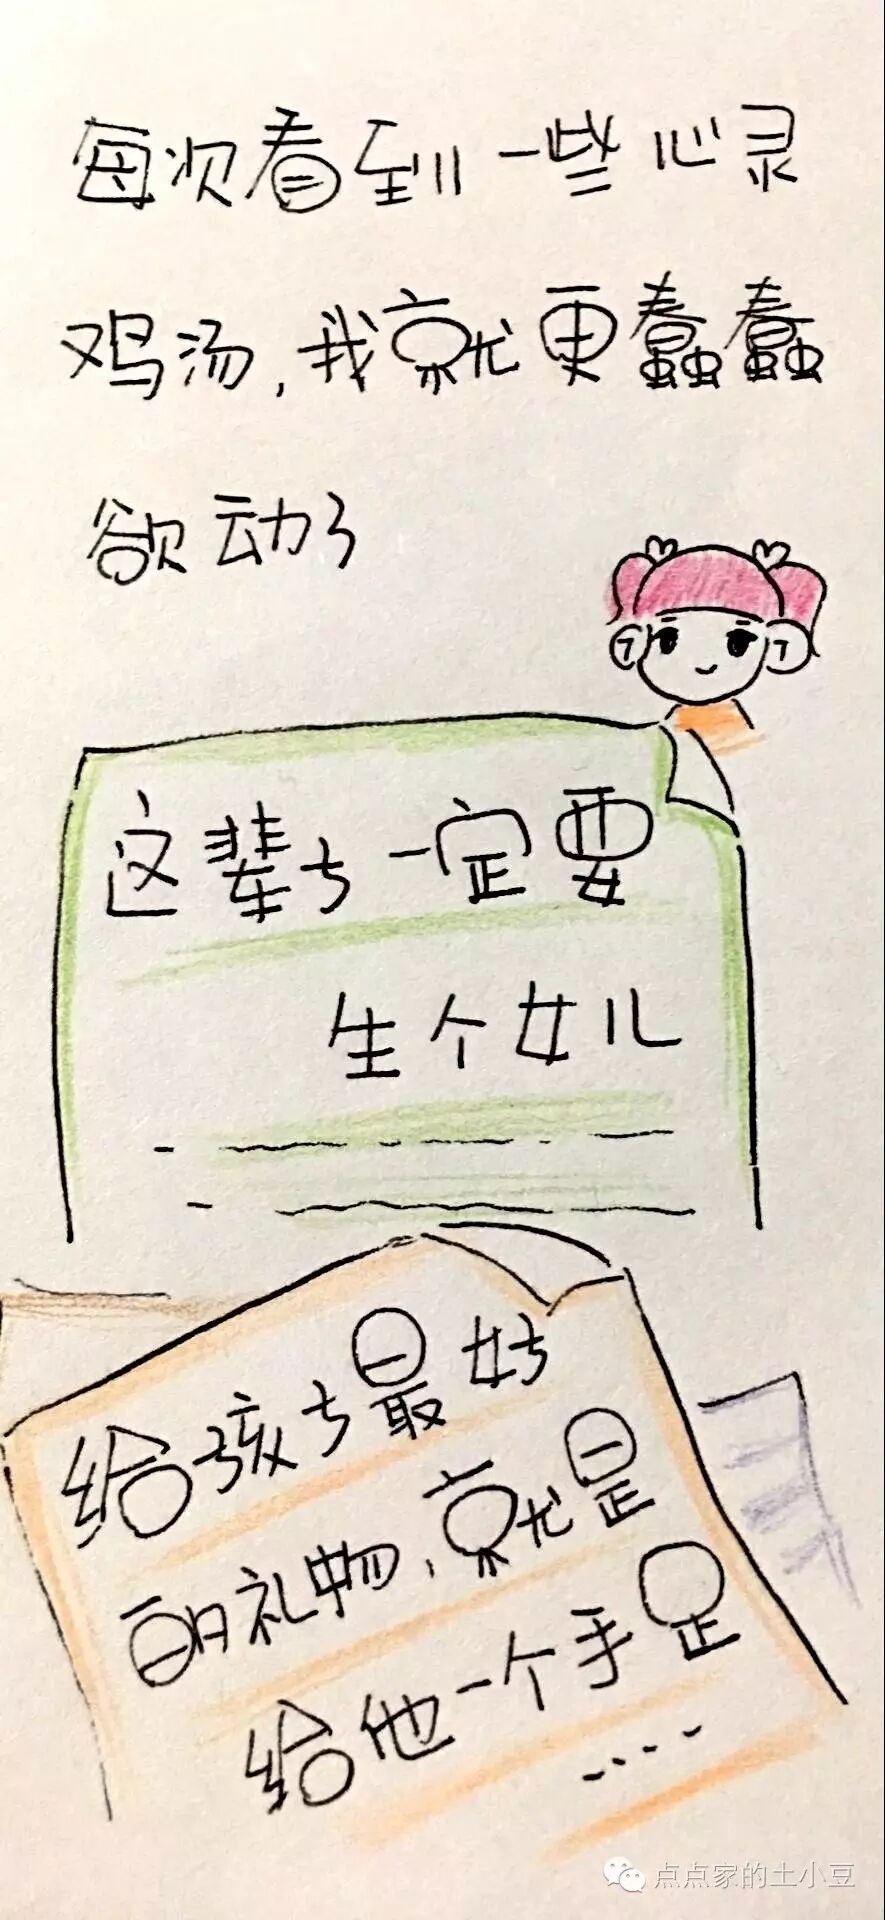 每次看到一些心灵
鸡汤,我就更蠢蠢
欲动了
这辈子一定要
生个女儿
给孩子最好
的礼物,就是
给他一个手足
....
点点家的土小豆